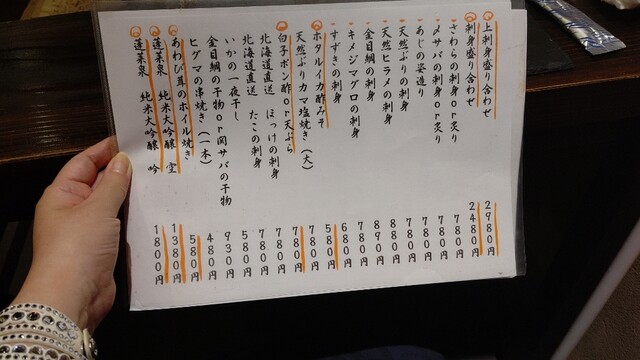 上刺身盛り合わせ 2980円
刺身盛り合わせ 2480円
さわらの刺身or炙り 780円
〆サバの刺身or炙り 780円
あじの姿造り 780円
天然ぶりの刺身 780円
天然ヒラメの刺身 880円
金目鯛の刺身 890円
キメジマグロの刺身 780円
すずきの刺身 680円
ホタルイカ酢みそ 580円
天然ぶりカマ塩焼き(大) 780円
白子ポン酢or天ぷら 780円
北海道直送 ほっけの刺身 780円
北海道直送 たこの刺身 780円
いかの一夜干し 580円
金目鯛の干物or関サバの干物 930円
ヒグマの串焼き(一本) 480円
あわび茸のホイル焼き 580円
蓬莱泉 純米大吟醸 空 1380円
蓬莱泉 純米大吟醸 吟 1800円